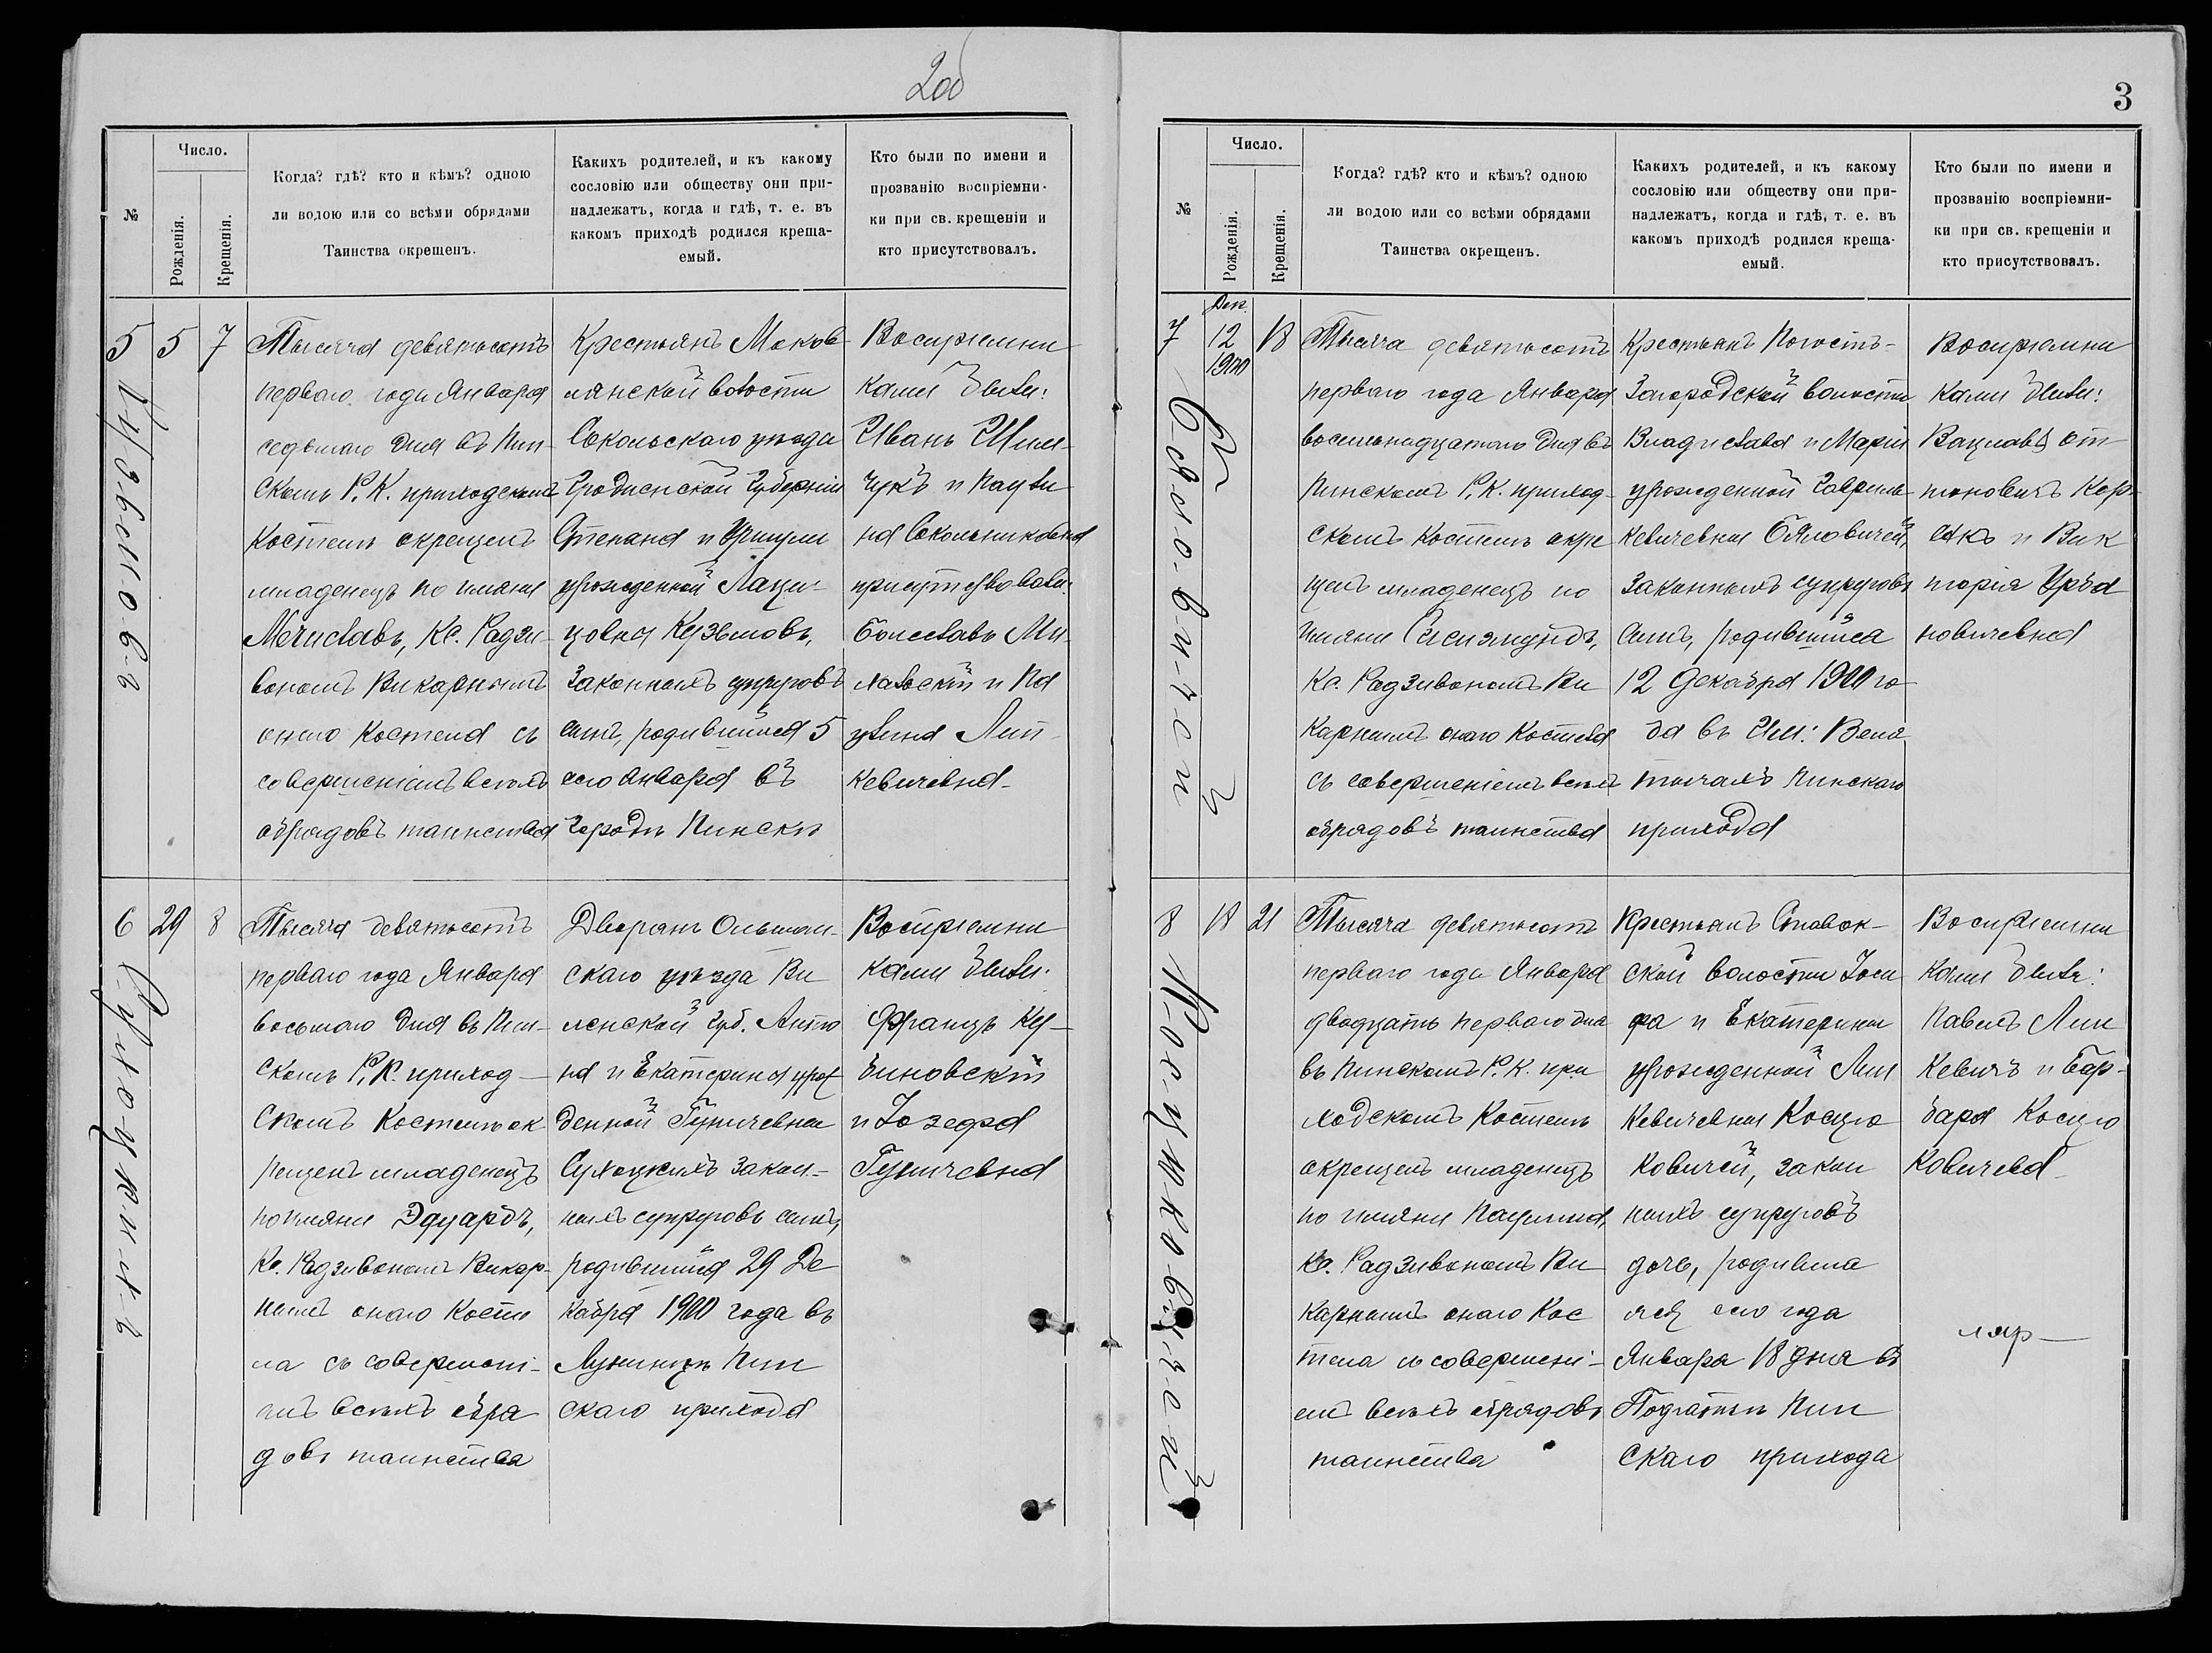 2об
№
Число.
Рожденія.
Крещенія.
Когда? гдѣ? кто и кѣмъ? одною
ли водою или со всѣми обрядами
Таинства окрещенъ.
Какихъ родителей, и къ какому
сословію или обществу они при-
надлежатъ, когда и гдѣ, т. е. въ
какомъ приходѣ родился креща-
емый.
Кто были по имени и
прозванію воспріемни-
ки при св. крещеніи и
кто присутствовалъ.
5
5
7
Кузьмовъ
Тысяча девятьсотъ
перваго года Января
седьмаго дня въ Пин-
скомъ Р. К. приходскомъ
Костелѣ окрещенъ
младенецъ по имяни
Мечиславъ, Кс. Радзи-
вономъ Викарнымъ
онаго Костела съ
совершеніемъ всѣхъ
обрядовъ таинства
Крестьянъ Маков
лянской волости
Сокольскаго уѣзда
Гродненской Губерніи
Степана и Уршули
урожденной Лаци-
цовны Кузьмовъ,
Законныхъ супруговъ
сынъ, родившійся 5
сего Января въ
Городѣ Пинскѣ
Воспріемни
ками были:
Иванъ Шим-
чукъ и Паули
на Сокольниковна
присутствовали:
Болеславъ Ми-
лавскій и Па
улина Лип
кевичевна
6
29
8
Сулоцкихъ
Тысяча девятьсотъ
перваго года Января
восьмаго дня въ Пин-
скомъ Р. К. приход-
скомъ Костелѣ ок
рещенъ младенецъ
по имяни Эдуардъ,
Кс. Радзивономъ Викар-
нымъ онаго Косте
ла съ совершені-
емъ всѣхъ обря
довъ таинства
Дворянъ Ошмян-
скаго уѣзда Ви
ленской Губ. Анто
на и Екатерины урож
денной Гуничевны
Сулоцкихъ закон-
ныхъ супруговъ сынъ,
родившійся 29 Де
кабря 1900 года въ
Лунинцѣ Пин
скаго прихода
Воспріемни
ками были:
Францъ Ку-
биновскій
и Іозефа
Гуничевна
3
№
Число.
Рожденія.
Крещенія.
Когда? гдѣ? кто и кѣмъ? одною
ли водою или со всѣми обрядами
Таинства окрещенъ.
Какихъ родителей, и къ какому
сословію или обществу они при-
надлежатъ, когда и гдѣ, т. е. въ
какомъ приходѣ родился креща-
емый.
Кто были по имени и
прозванію воспріемни-
ки при св. крещеніи и
кто присутствовалъ.
7
Дек.
12
1900
18
Тысяча девятьсотъ
перваго года Января
восемьнадцатаго дня въ
Пинскомъ Р. К. приход-
скомъ Костелѣ окре
щенъ младенецъ по
имяни Сигизмундъ,
Кс. Радзивономъ Ви
карнымъ онаго Костела
съ совершеніемъ всѣхъ
обрядовъ таинства
Крестьянъ Погостъ-
Загородской волости
Владислава и Маріи
урожденной Гавриль
кевичевны
Законныхъ супруговъ
сынъ, родившійся
12 Декабря 1900 го
да въ Им:
Пинскаго
прихода
Воспріемни
ками были:
Вацлавъ Ан
тоновичъ Кор
и Вик
торія Урба
новичевна
8
18
21
Тысяча девятьсотъ
перваго года Января
двадцать перваго дня
въ Пинскомъ Р. К. при
ходскомъ Костелѣ
окрещенъ младенецъ
по имяни Паулина,
Кс. Радзивономъ Ви
карнымъ онаго Кос
тела съ совершені-
емъ всѣхъ обрядовъ
таинства
Крестьянъ Ставок-
ской волости Іоси
фа и Екатерины
урожденной Лин
кевичевны Косцю
ковичей, закон
ныхъ супруговъ
дочь, родивша
яся сего года
Января 18 дня въ
Пин
скаго прихода
Воспріемни
ками были:
Павелъ Лин
кевичъ и Бар-
бара Косцю
ковичева